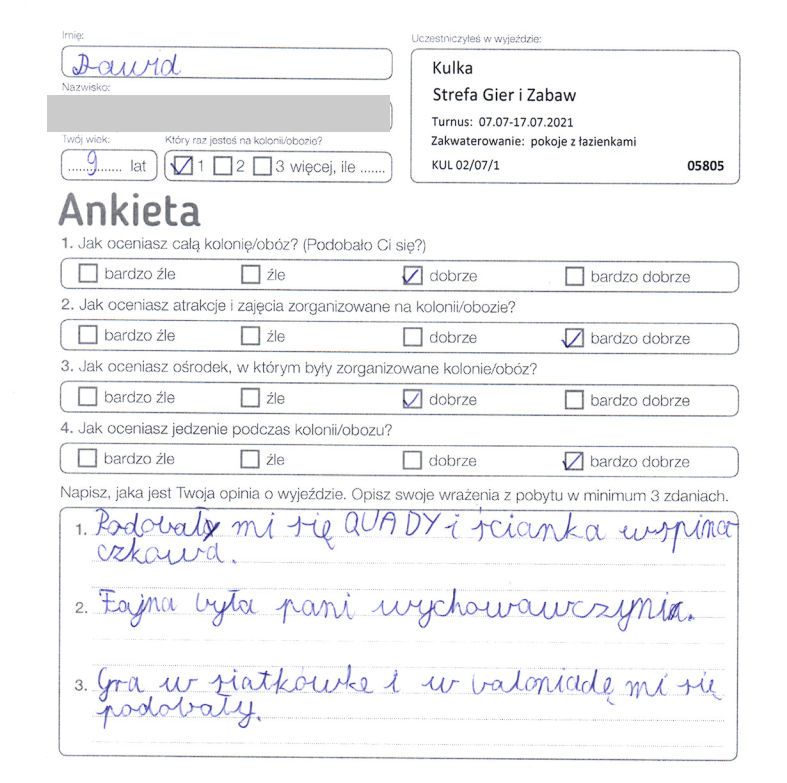 Imię:
Dawid
Nazwisko:
Twój wiek:
Który raz jesteś na kolonii/obozie?
......9...... lat
1 2 3 więcej, ile .......
Uczestniczyłeś w wyjeździe:
Kulka
Strefa Gier i Zabaw
Turnus: 07.07-17.07.2021
Zakwaterowanie: pokoje z łazienkami
KUL 02/07/1 05805
Ankieta
1. Jak oceniasz całą kolonię/obóz? (Podobało Ci się?)
bardzo źle źle dobrze bardzo dobrze
2. Jak oceniasz atrakcje i zajęcia zorganizowane na kolonii/obozie?
bardzo źle źle dobrze bardzo dobrze
3. Jak oceniasz ośrodek, w którym były zorganizowane kolonie/obóz?
bardzo źle źle dobrze bardzo dobrze
4. Jak oceniasz jedzenie podczas kolonii/obozu?
bardzo źle źle dobrze bardzo dobrze
Napisz, jaka jest Twoja opinia o wyjeździe. Opisz swoje wrażenia z pobytu w minimum 3 zdaniach.
1. Podobały mi się QUADY i ścianka wspina
czkowa.
2. Fajna była pani wychowawczyni.
3. Gra w siatkówke i w baloniadę mi się
podobały.